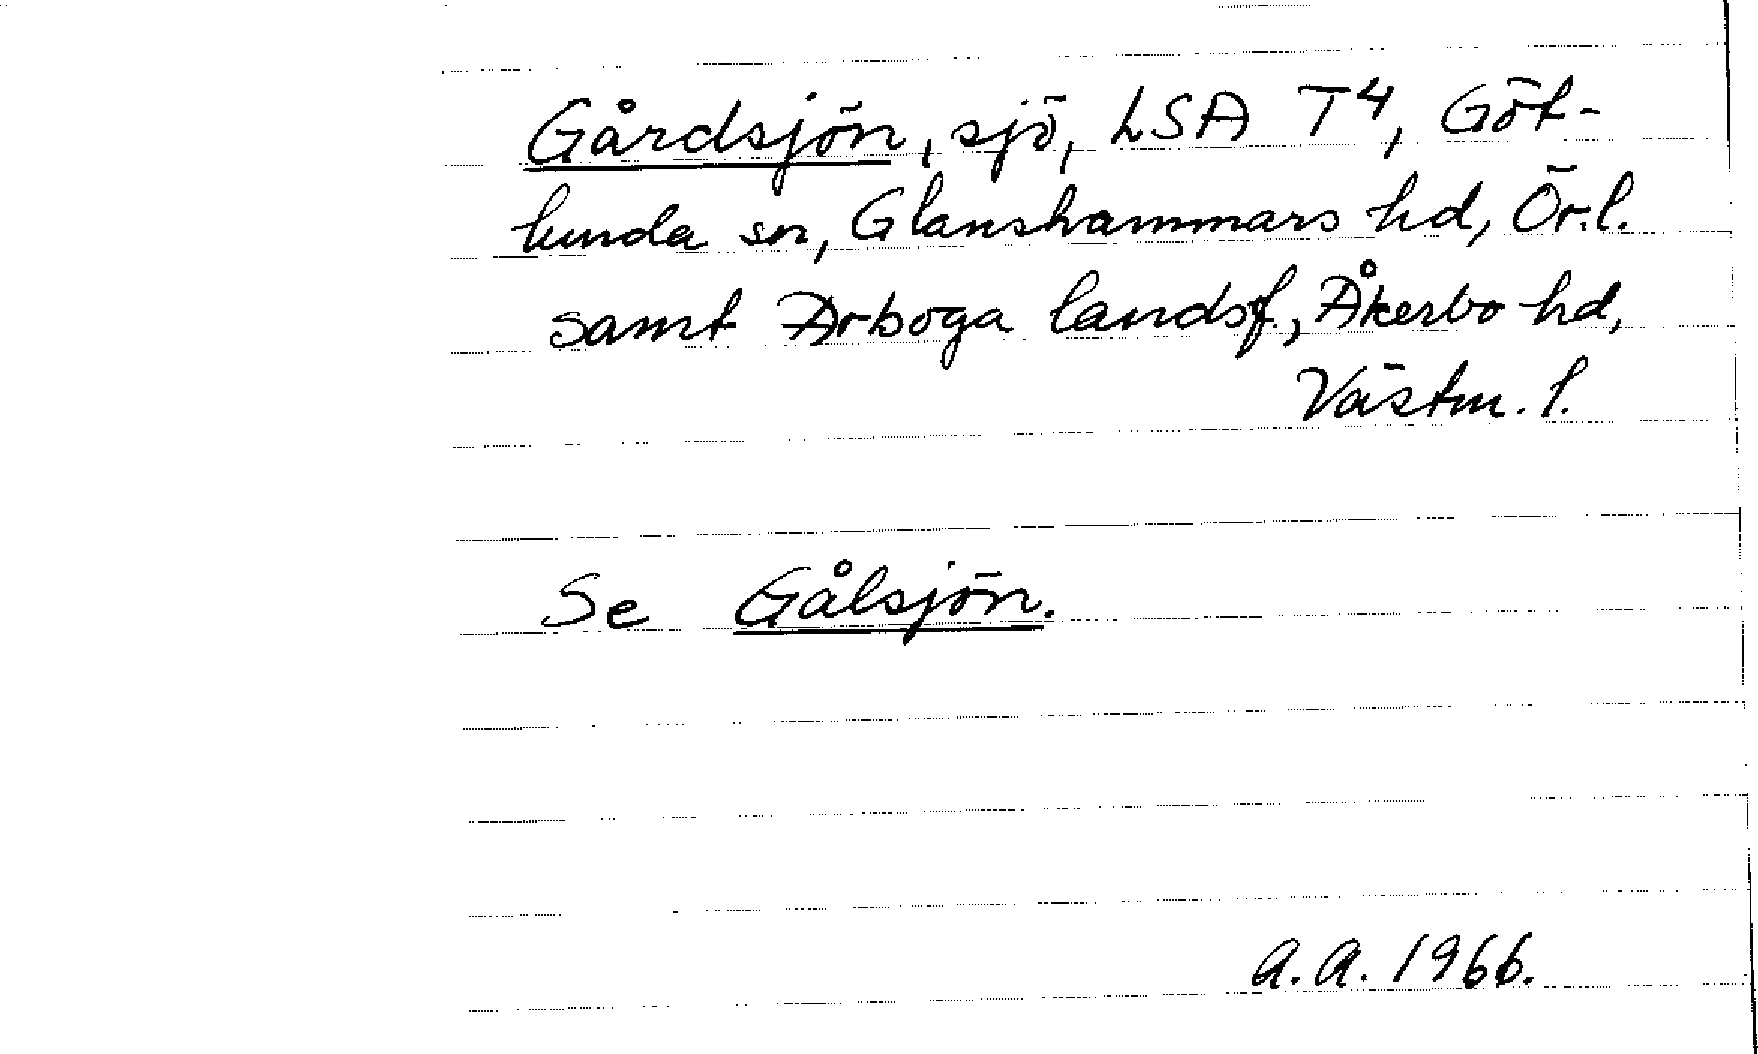 Gårdsjön, sjö, LSA T4, Göt-
lunda sn, Glanshammars hd, Ör.l.
samt Arboga landsf., Åkerbo hd,
Västm. l.
Se Gålsjön.
A.A. 1966.